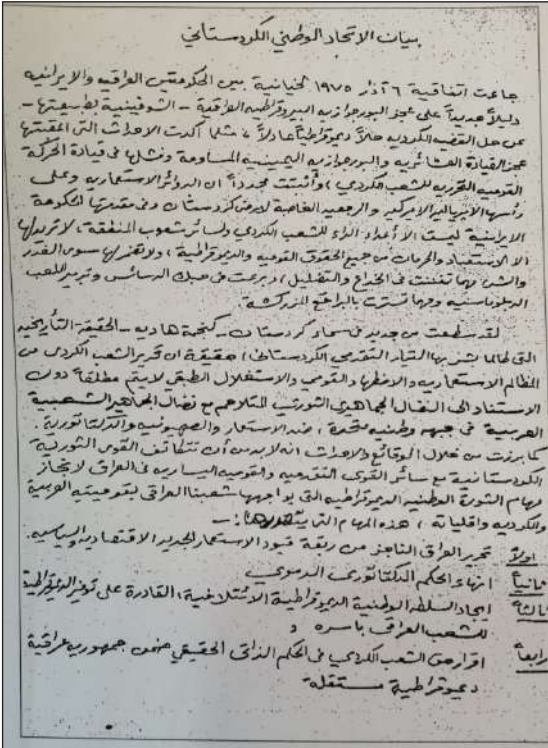 بيان الاتحاد الوطني الكردستاني
جاءت اتفاقية ٦ آذار ١٩٧٥ الخيانية بين الحكومتين العراقية والايرانية
دليلاً جديداً على عجز البورجوازية البيروقراطية العراقية - الشوفينية لطبيعتها -
عن حل القضية الكردية حلاً ديموقراطياً عادلاً، مثلما أكدت الاحداث التي اعقبتها
عجز القيادة العشائرية والبورجوازية اليمينية المساومة وفشلها في قيادة الحركة
القومية التحررية للشعب الكردي، وأثبتت مجدداً ان الدوائر الاستعمارية وعلى
رأسها الامبريالية الامريكية والرجعية الغاصبة لارض كردستان وفي مقدمتها الحكومة
الايرانية ليست الا أعداء ألداء للشعب الكردي ولسائر شعوب المنطقة، لا تريد لها
الا الاستعباد والحرمان من جميع الحقوق القومية والديموقراطية، ولا تضمر لها سوى الغدر
والشر، مهما تفننت في الخداع والتضليل، وبرعت في حبك الدسائس وتبرير اللعب
الدبلوماسية ومهما تسترت بالبراقع المزركشة.
لقد سطعت من جديد في سماء كردستان - كنجمة هادية - الحقيقة التأريخية
التي لطالما بشر بها التيار التقدمي الكردستاني، حقيقة ان تحرير الشعب الكردي من
المظالم الاستعمارية والاضطهاد القومي والاستغلال الطبقي لا يتم مطلقاً دون
الاستناد الى النضال الجماهيري الثوري المتلاحم مع نضال الجماهير الشعبية
العربية في جبهة وطنية متحدة، ضد الاستعمار والصهيونية والدكتاتورية.
كما برزت من خلال الوقائع والاحداث انه لا بد من أن تتكاتف القوى الثورية
الكردستانية مع سائر القوى التقدمية والقومية اليسارية في العراق لانجاز
مهام الثورة الوطنية الديموقراطية التي يواجهها شعبنا العراقي بقوميتيه العربية
والكردية واقلياته، هذه المهام التي :-
اولاً تحرير العراق الناجز من ربقة قيود الاستعمار الجديد الاقتصادية والسياسية.
ثانياً انهاء الحكم الدكتاتوري الدموي
ثالثاً ايجاد السلطة الوطنية الديموقراطية الائتلافية، القادرة على توفير الديموقراطية
للشعب العراقي باسره و
رابعاً اقرار حق الشعب الكردي في الحكم الذاتي الحقيقي ضمن جمهورية عراقية
ديموقراطية مستقلة